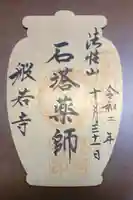 法性山
令和二年
十月三十一日
石塔薬師
般若寺